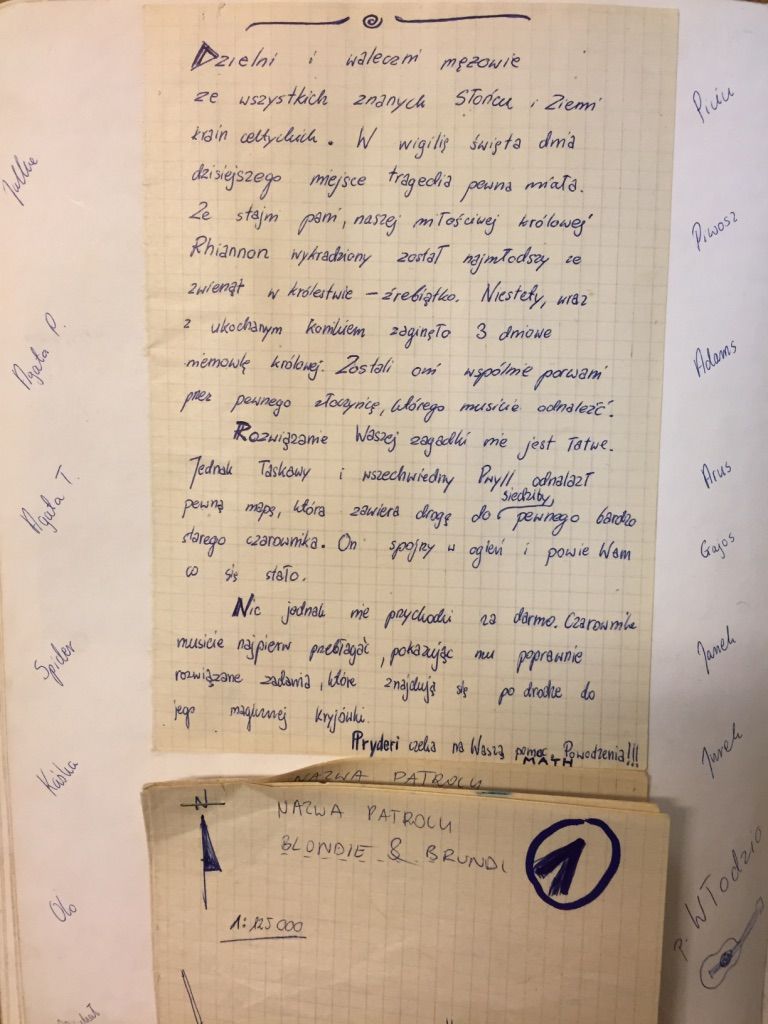 Dzielni i waleczni mężowie
ze wszystkich znanych Słońcu i Ziemi
krain celtyckich. W wigilię święta dnia
dzisiejszego miejsce tragedia pewna miała.
Ze stajni pani, naszej miłościwej królowej
Rhiannon wykradziony został najmłodszy ze
zwierząt w królestwie – źrebiątko. Niestety, wraz
z ukochanym konikiem zaginęło 3 dniowe
niemowlę królowej. Zostali oni wspólnie porwani
przez pewnego złoczyńcę, którego musicie odnaleźć.
Rozwiązanie Waszej zagadki nie jest łatwe.
Jednak łaskawy i wszechwiedny Pwyll odnalazł
siedziby
pewną mapę, która zawiera drogę do pewnego bardzo
starego czarownika. On spojrzy w ogień i powie Wam
co się stało.
Nic jednak nie przychodzi za darmo. Czarownika
musicie najpierw przebłagać, pokazując mu poprawnie
rozwiązane zadania, które znajdują się po drodze do
jego magicznej kryjówki.
Pryderi czeka na Waszą pomoc. Powodzenia!!!
MATH
NAZWA PATROLU
N
NAZWA PATROLU
BLONDIE & BRUNDI
1
1:125000
Julka
Agata P.
Agata T.
Spider
Kaśka
Olo
Piciu
Piwosz
Adams
Arus
Gajos
Janek
Jurek
p. Włodzio